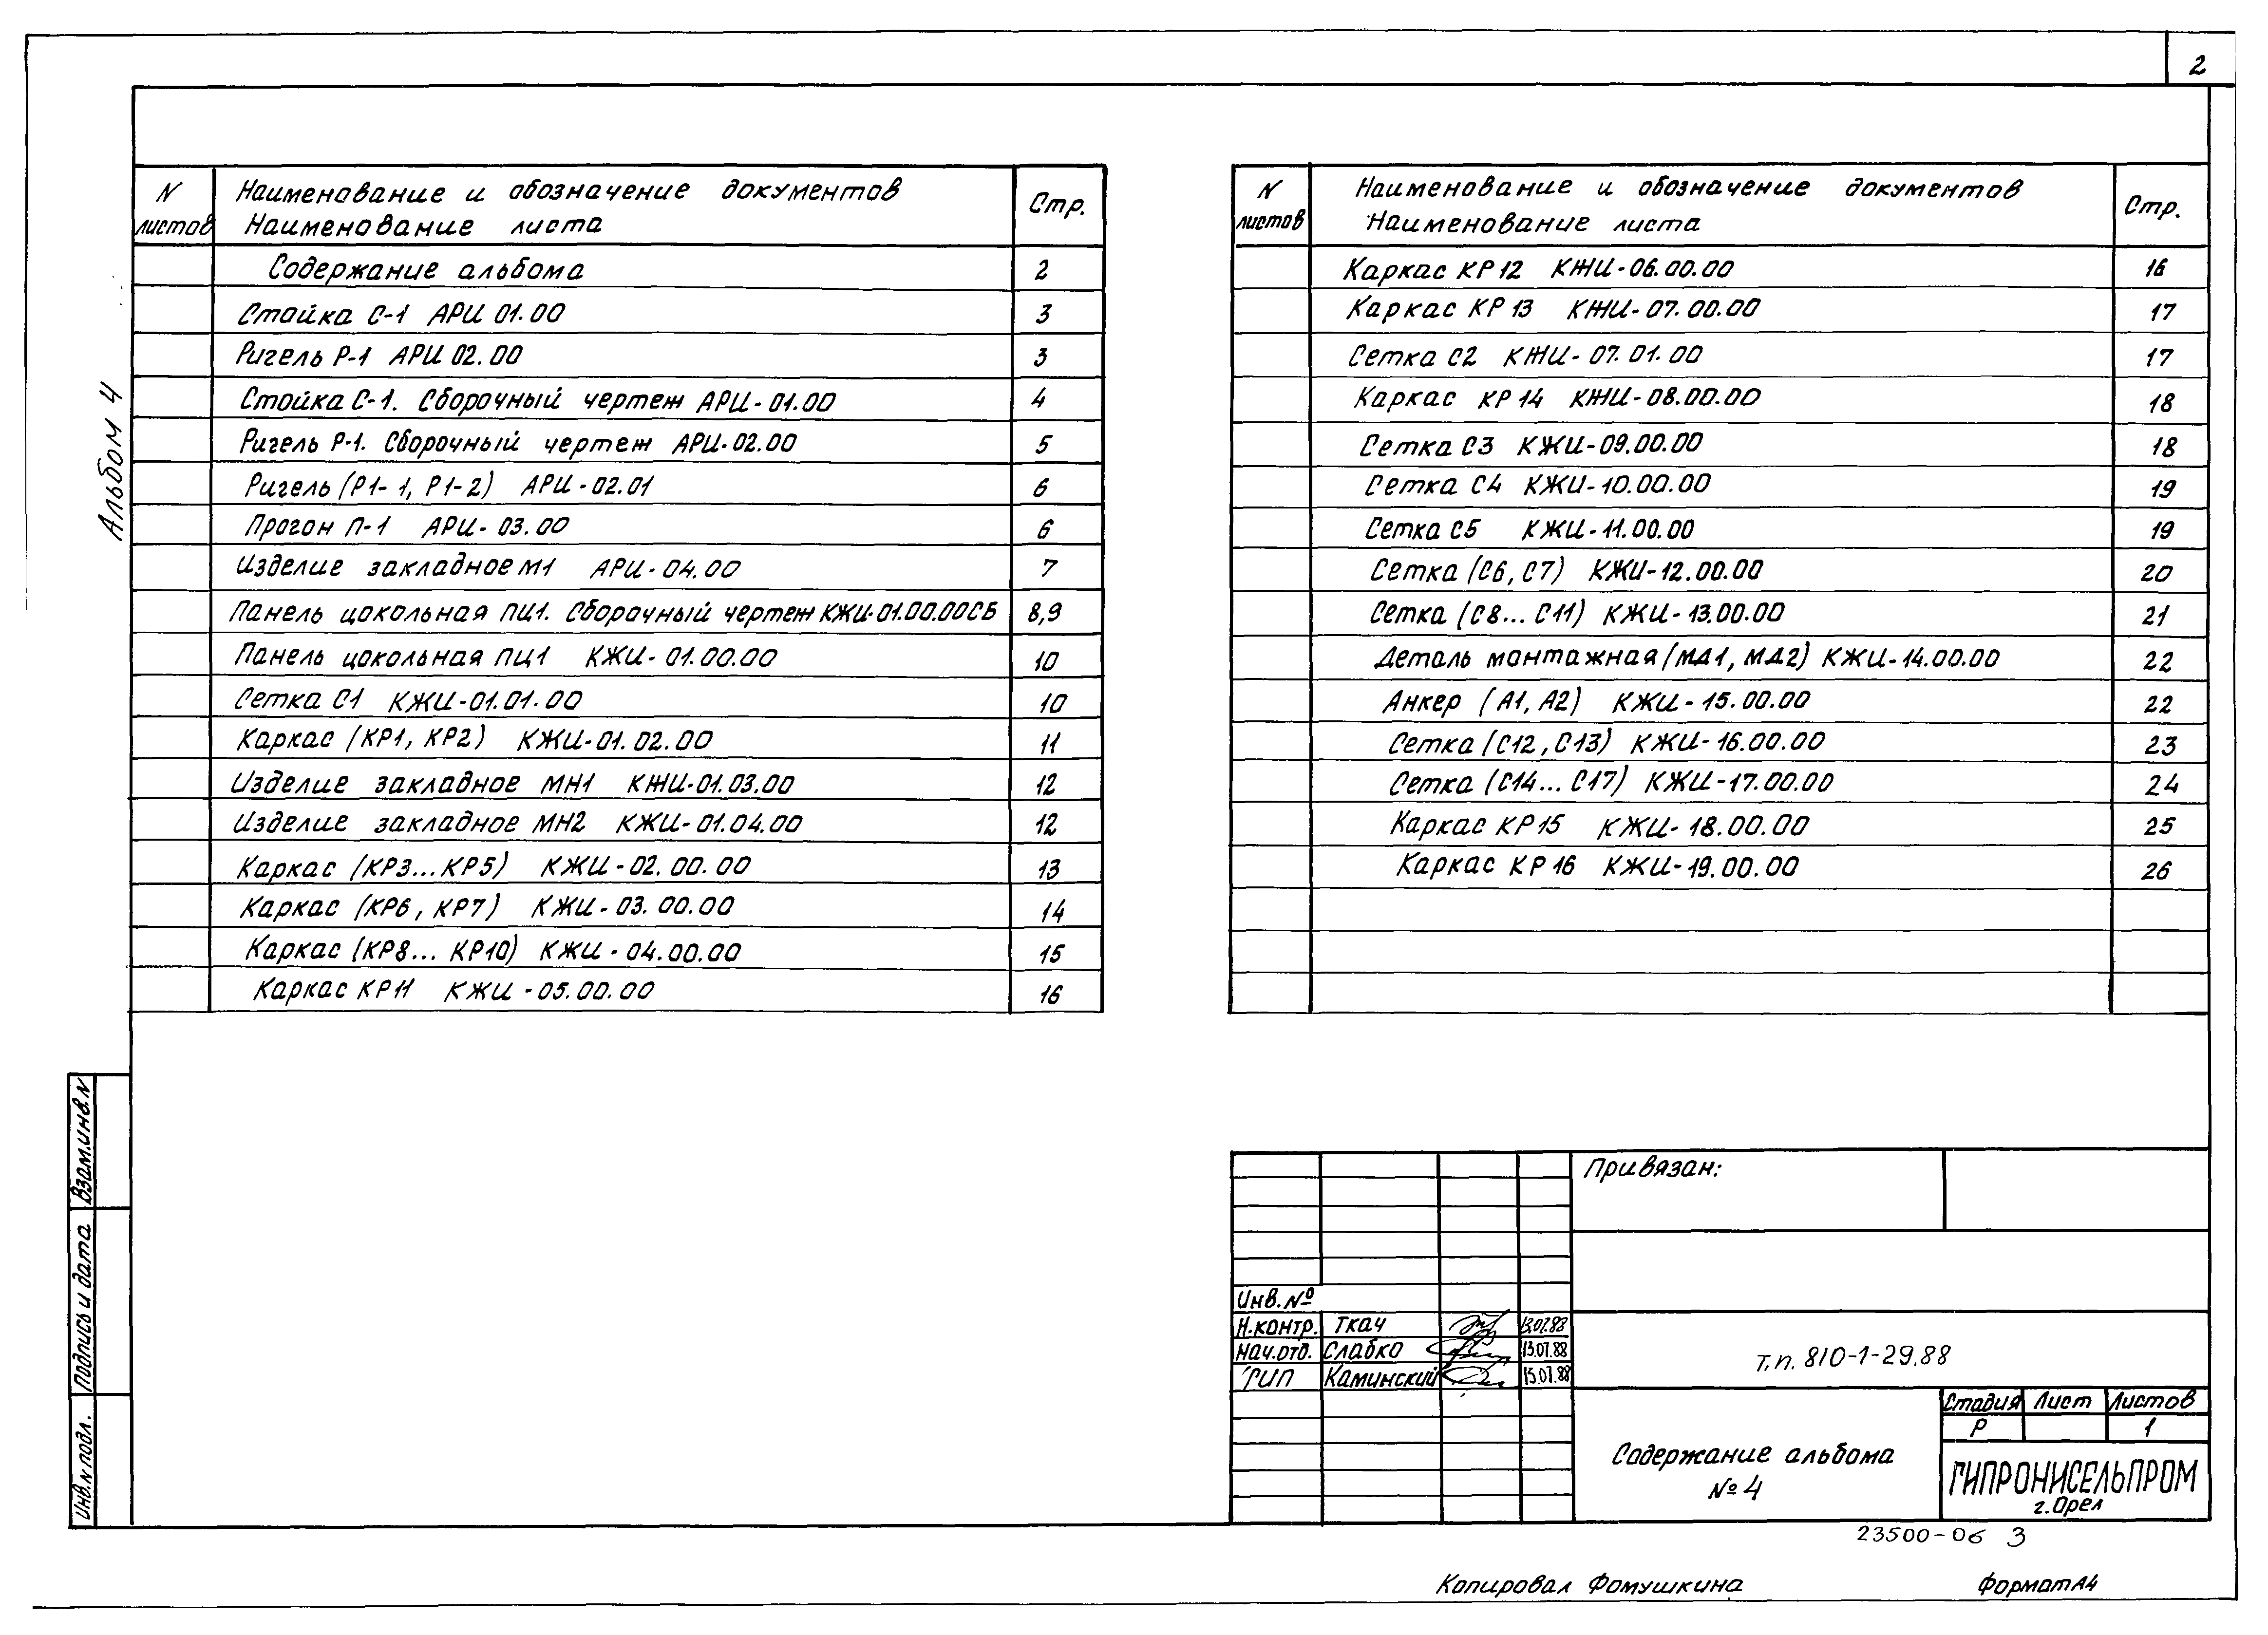 2
Альбом 4
N листов
Наименование и обозначение документов
Наименование листа
Стр.
Содержание альбома 2
Стойка С-1 АРИ 01.00 3
Ригель Р-1 АРИ 02.00 3
Стойка С-1. Сборочный чертеж АРИ-01.00 4
Ригель Р-1. Сборочный чертеж АРИ-02.00 5
Ригель (Р1-1, Р1-2) АРИ-02.01 6
Прогон П-1 АРИ-03.00 6
Изделие закладное М1 АРИ-04.00 7
Панель цокольная ПЦ1. Сборочный чертеж КЖИ-01.00.00СБ 8,9
Панель цокольная ПЦ1 КЖИ-01.00.00 10
Сетка С1 КЖИ-01.01.00 10
Каркас (КР1, КР2) КЖИ-01.02.00 11
Изделие закладное МН1 КЖИ-01.03.00 12
Изделие закладное МН2 КЖИ-01.04.00 12
Каркас (КР3...КР5) КЖИ-02.00.00 13
Каркас (КР6, КР7) КЖИ-03.00.00 14
Каркас (КР8... КР10) КЖИ-04.00.00 15
Каркас КР11 КЖИ-05.00.00 16
N листов
Наименование и обозначение документов
Наименование листа
Стр.
Каркас КР12 КЖИ-06.00.00 16
Каркас КР13 КЖИ-07.00.00 17
Сетка С2 КЖИ-07.01.00 17
Каркас КР14 КЖИ-08.00.00 18
Сетка С3 КЖИ-09.00.00 18
Сетка С4 КЖИ-10.00.00 19
Сетка С5 КЖИ-11.00.00 19
Сетка (С6, С7) КЖИ-12.00.00 20
Сетка (С8... С11) КЖИ-13.00.00 21
Деталь монтажная (МД1, МД2) КЖИ-14.00.00 22
Анкер (А1, А2) КЖИ-15.00.00 22
Сетка (С12, С13) КЖИ-16.00.00 23
Сетка (С14... С17) КЖИ-17.00.00 24
Каркас КР15 КЖИ-18.00.00 25
Каркас КР16 КЖИ-19.00.00 26
Взам.инв.N
Подпись и дата
Инв.N подл.
Привязан:
Инв.№
Н.контр. Ткач 13.07.88
Нач.отд. Слабко 13.07.88
ГИП Каминский 13.07.88
т.п. 810-1-29.88
Содержание альбома
№4
Стадия Лист Листов
Р 1
ГИПРОНИСЕЛЬПРОМ
г.Орел
23500-06 3
Копировал Фомушкина
Формат А4